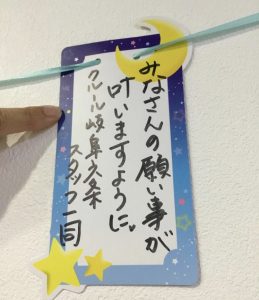 みなさんの願い事が
叶いますように。
クルール岐阜六条
スタッフ一同